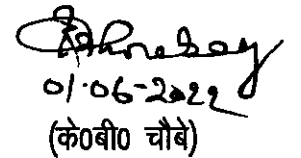 01-06-2022
(के0बी0 चौबे)